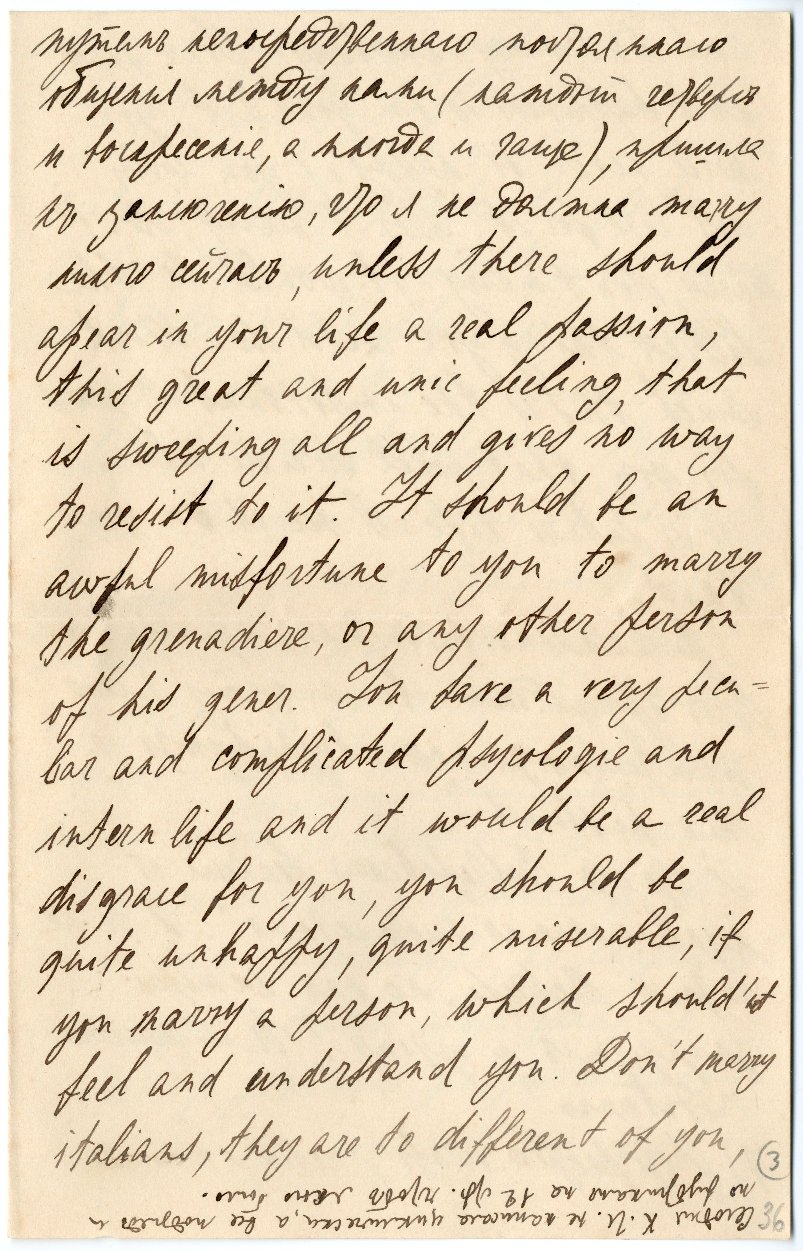 путемъ непосредственнаго постояннаго
общенія между нами (каждый четвергъ
и воскресеніе, а иногда и чаще), пришла
къ заключенію, что я не должна marry
никого сейчасъ, unless there should
apear in your life a real passion,
this great and unic feeling, that
is sweeping all and gives no way
to resist to it. It should be an
awful misfortune to you to marry
the grenadiere, or any other person
of his gener. You have a very pecu=
liar and complicated psycologie and
intern life and it would be a real
disgrace for you, you should be
quite unhappy, quite miserable, if
you marry a person, which should'nt
feel and understand you. Don't marry
italians, they are to different of you,
3
36
Сегодня К. И. не написала, а все
на 12 стр. чтобъ было.